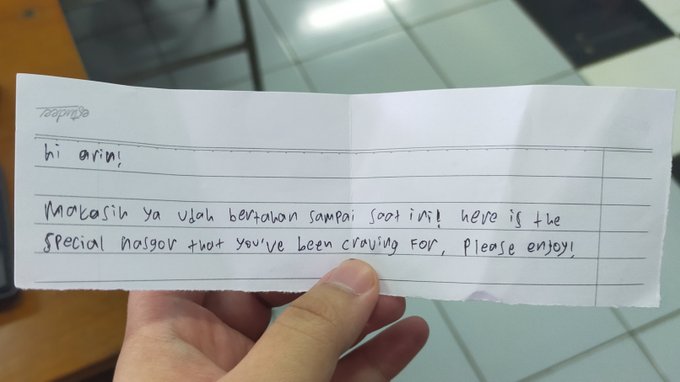 hi arin!
Makasih ya udah bertahan sampai saat ini! here is the
special nasgor that you've been craving for, please enjoy!